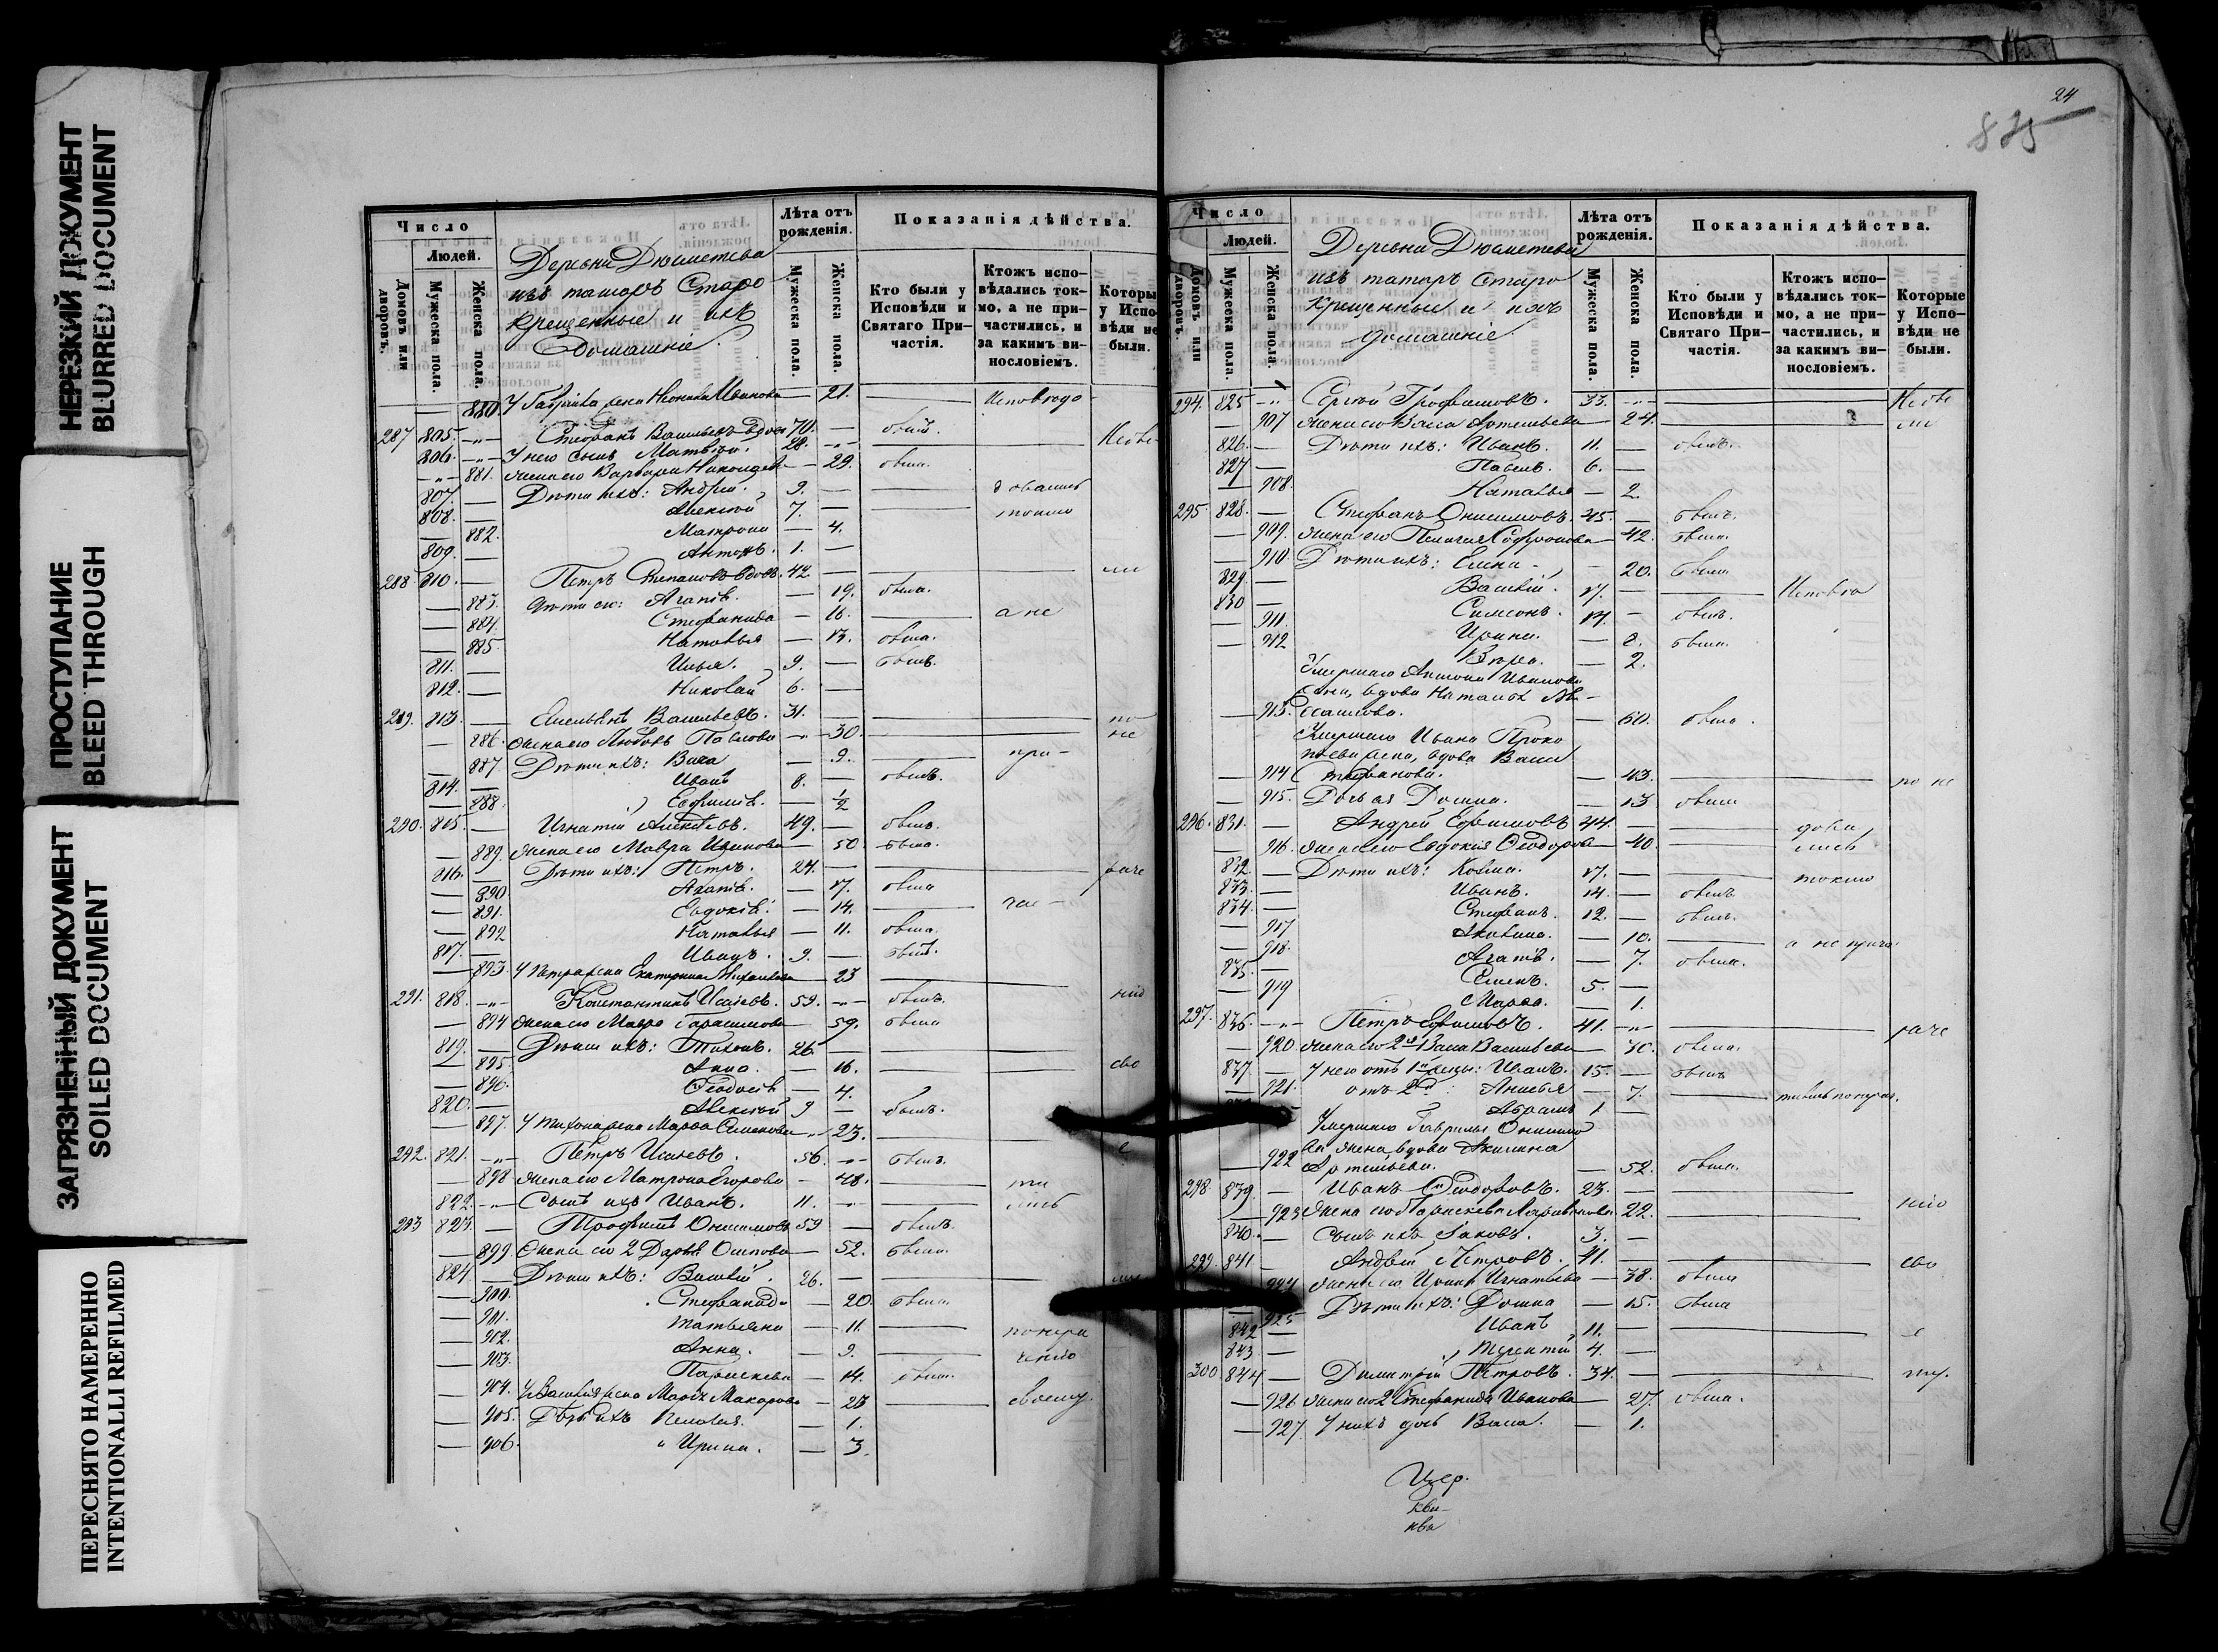 НЕРЕЗКИЙ ДОКУМЕНТ
BLURRED DOCUMENT
ПРОСТУПАНИЕ
BLEED THROUGH
ЗАГРЯЗНЕННЫЙ ДОКУМЕНТ
SOILED DOCUMENT
ПЕРЕСНЯТО НАМЕРЕННО
INTENTIONALLI REFILMED
Число
Людей.
Домовъ или дворовъ.
Мужеска пола.
Женска пола.
Деревни Дюсметева
изъ татаръ Старо
крещенные и ихъ
Домашніе.
Лѣта отъ рожденія.
Мужеска пола.
Женска пола.
Показанія дѣйства.
Кто были у Исповѣди и Святаго Причастія.
Ктожъ исповѣдались токмо, а не причастились, и за какимъ винословіемъ.
Которы у Испо вѣди не были.
— 880 У Гавріила жена Ивановa — 21. — Исповѣдо
287 805. -„- Стефанъ Васильевъ вдов 70. — бывъ.
806. -„- У него сынъ Матвѣй. 28. -„- — Небы
-„- 881. жена его Варвара — 29. была.
807. — Дѣти ихъ: Андрей. 9. — — вались
808. — Алексѣй 7. — — токмо
— 882. Матрона — 4.
809. — Антонъ. 1. —
288 810. — Петръ Степановъ вдовъ. 42. — — ли
— 883. Дѣти его: Агапія. — 19. была.
— 884. Стефанида — 16. — а не
— 885. Наталья — 13. была.
811. — Илья. 9. — былъ.
812. — Николай 6. —
289. 813. — Емельянъ Васильевъ. 31. — — по
— 886. жена его Любовь Павлова -„- 30. — не
— 887. Дѣти ихъ: Васа — 9. — при-
814. — Иванъ 8. — былъ.
— 888. Евфимія. — ½
290. 815. — Игнатій Алексѣевъ. 49. — былъ.
— 889. жена его Мавра Иванова — 50. была.
816. — Дѣти ихъ: Петръ. 24. — — раче
— 890 Агапія. — 17. была
— 891. Евдокія. — 14. — час-
— 892 Наталья — 11. была.
817. — Иванъ. 9. — былъ.
— 893. У Петра жена Екатерина Михайлова — 23 —
291. 818. -„- Константинъ Исаевъ. 59. -„- былъ. нію
— 894 жена его Мавра Герасимова — 59. была
819. — Дѣти ихъ: Тихонъ. 26. — —
— 895. Анна. — 16. — сво
— 896. Феодосія — 4.
820. — Алексѣй 9 — былъ.
— 897. У Тихона жена Марѳа Семенова -„- 23. —
292. 821. -„- Петръ Исаевъ. 56. -„- былъ. е
— 898 жена его Матрона Егорова — 48. — ти
822. -„- Сынъ ихъ Иванъ. 11. -„- — лись
293 823. — Трофимъ Онисимовъ 59 — былъ.
— 899 жена его 2 Дарья Осипова — 52. была.
824. — Дѣти ихъ: Василій. 26. — —
— 900. Стефанида — 20. была.
— 901. Татьяна — 11. — понера
— 902. Анна. — 9. — ченію
— 903. Параскева — 14. была.
— 904. У Василія жена Макарова — 23 — своему.
— 905. Дѣти ихъ Пелагея. — 1.
— 906. „ Ирина. — 3.
24
835
Число
Людей.
Домовъ или дворовъ.
Мужеска пола.
Женска пола.
Деревни Дюсметева
изъ татаръ Старо
крещенные и ихъ
домашніе
Лѣта отъ рожденія.
Мужеска пола.
Женска пола.
Показанія дѣйства.
Кто были у Исповѣди и Святаго Причастія.
Ктожъ исповѣдались токмо, а не причастились, и за какимъ винословіемъ.
Которые у Исповѣди не были.
294. 825 -„- Сергѣй Трофимовъ. 33. -„- — Небы
— 907 жена его Васа Артемьева — 24. — ли
826. — Дѣти ихъ: Иванъ. 11. — былъ.
827 — Павелъ. 6. —
— 908. Наталья — 2.
295. 828. — Стефанъ Онисимовъ. 45. — былъ.
— 909. жена его Пелагея Софронова — 42. была.
— 910. Дѣти ихъ: Елена — 20. была
829. — Василій. 17. — — Исповѣда
830 — Симеонъ. 14. — былъ.
— 911. Ирина. — 8. была.
— 912 Вѣра. — 2.
Умершаго Антона Иванова
жена, вдова Наталья
— 913. — 60. была.
Умершаго Ивана Проко
пьева жена, вдова Васа
— 914 Стефанова. — 43. — по не
— 915. Дочь ея Домна. — 13 была
296. 831. — Андрей Ефимовъ 44. — — дова
— 916. жена его Евдокія Ѳеодорова — 40. — лись
832. — Дѣти ихъ: Козма. 17. — — токмо
833. — Иванъ. 14. — былъ
834. — Стефанъ. 12. — былъ.
— 917 Акилина. — 10. — а не прича
— 918. Агапія. — 7. была.
835. — Семенъ. 5. —
— 919 Марѳа. — 1.
297. 836. -„- Петръ Ефимовъ. 41. -„- — раче
— 920 жена его 2я Васа Васильева — 30. была.
837. — У него отъ 1й жены: Иванъ. 15. — былъ
— 921. отъ 2й: Анисья — 7. — тились по нера.
Абрамъ 1 —
Умершаго Гаврила Онисимо
ва жена, вдова Акилина
— 922 Артемьева. — 52. была.
298. 839. — Иванъ Ѳеодоровъ. 23. — —
— 923 жена его Параскева 22. — нію
840. — Сынъ ихъ Іаковъ. 3. —
299. 841 — Андрей Петровъ. 41. — — сво
924 жена его Ирина Игнатьева — 38. была
— 925 Дѣти ихъ: Домна — 15. была
842 — Иванъ 11. — — е
843 — Терентій 4. —
300 844 — Димитрій Петровъ. 34. — — му.
— 926 жена его 2 Стефанида Иванова — 27. была.
— 927 У нихъ дочь Васа. — 1.